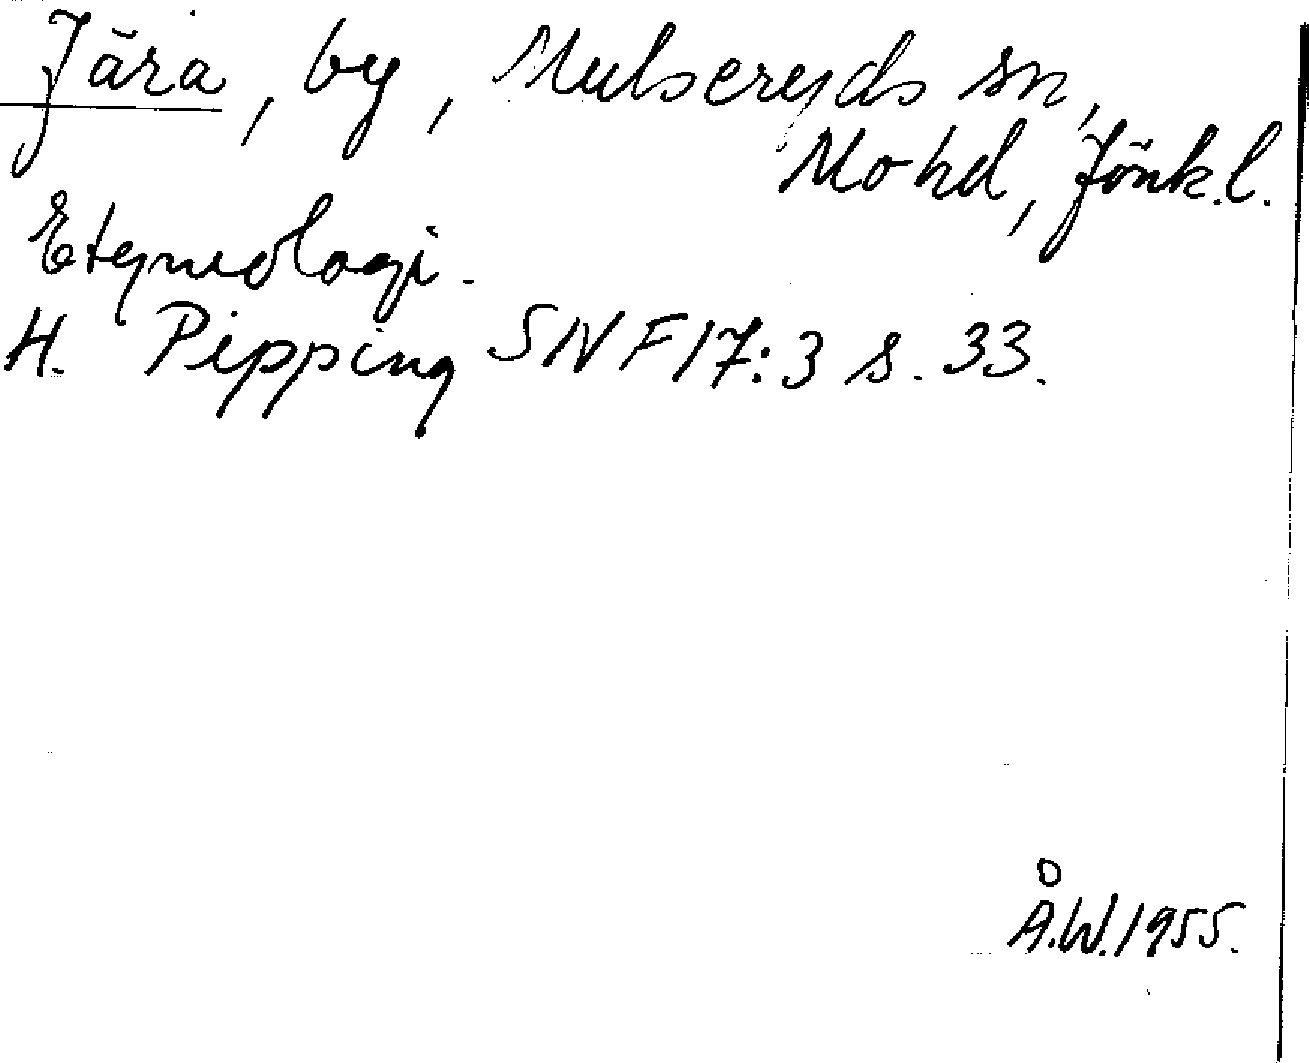 Jära, by, Mulseryds sn,
Mo hd, Jönk.l.
Etymologi.
H. Pipping SNF 17:3 s. 33.
Å.W. 1955.